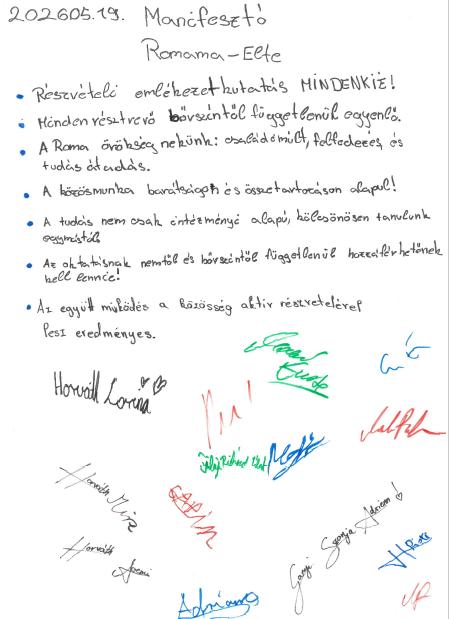 202605.19. Manifesztó
Romama-Elte
• Részvételi emlékezetkutatás MINDENKIÉ!
• Minden résztvevő bőrszíntől függetlenül egyenlő.
• A Roma örökség nekünk: családmúlt, felfedezés, és
tudás átadás.
• A közösmunka barátságon és összetartozáson alapul!
• A tudás nem csak intézményi alapú, kölcsönösen tanulunk
egymástól
• Az oktatásnak nemtől és bőrszíntől függetlenül hozzáférhetőnek
kell lennie!
• Az együtt működés a közösség aktív részvételével
lesz eredményes.
Horváth Lorina
Horváth Mira
Horváth
Adriana